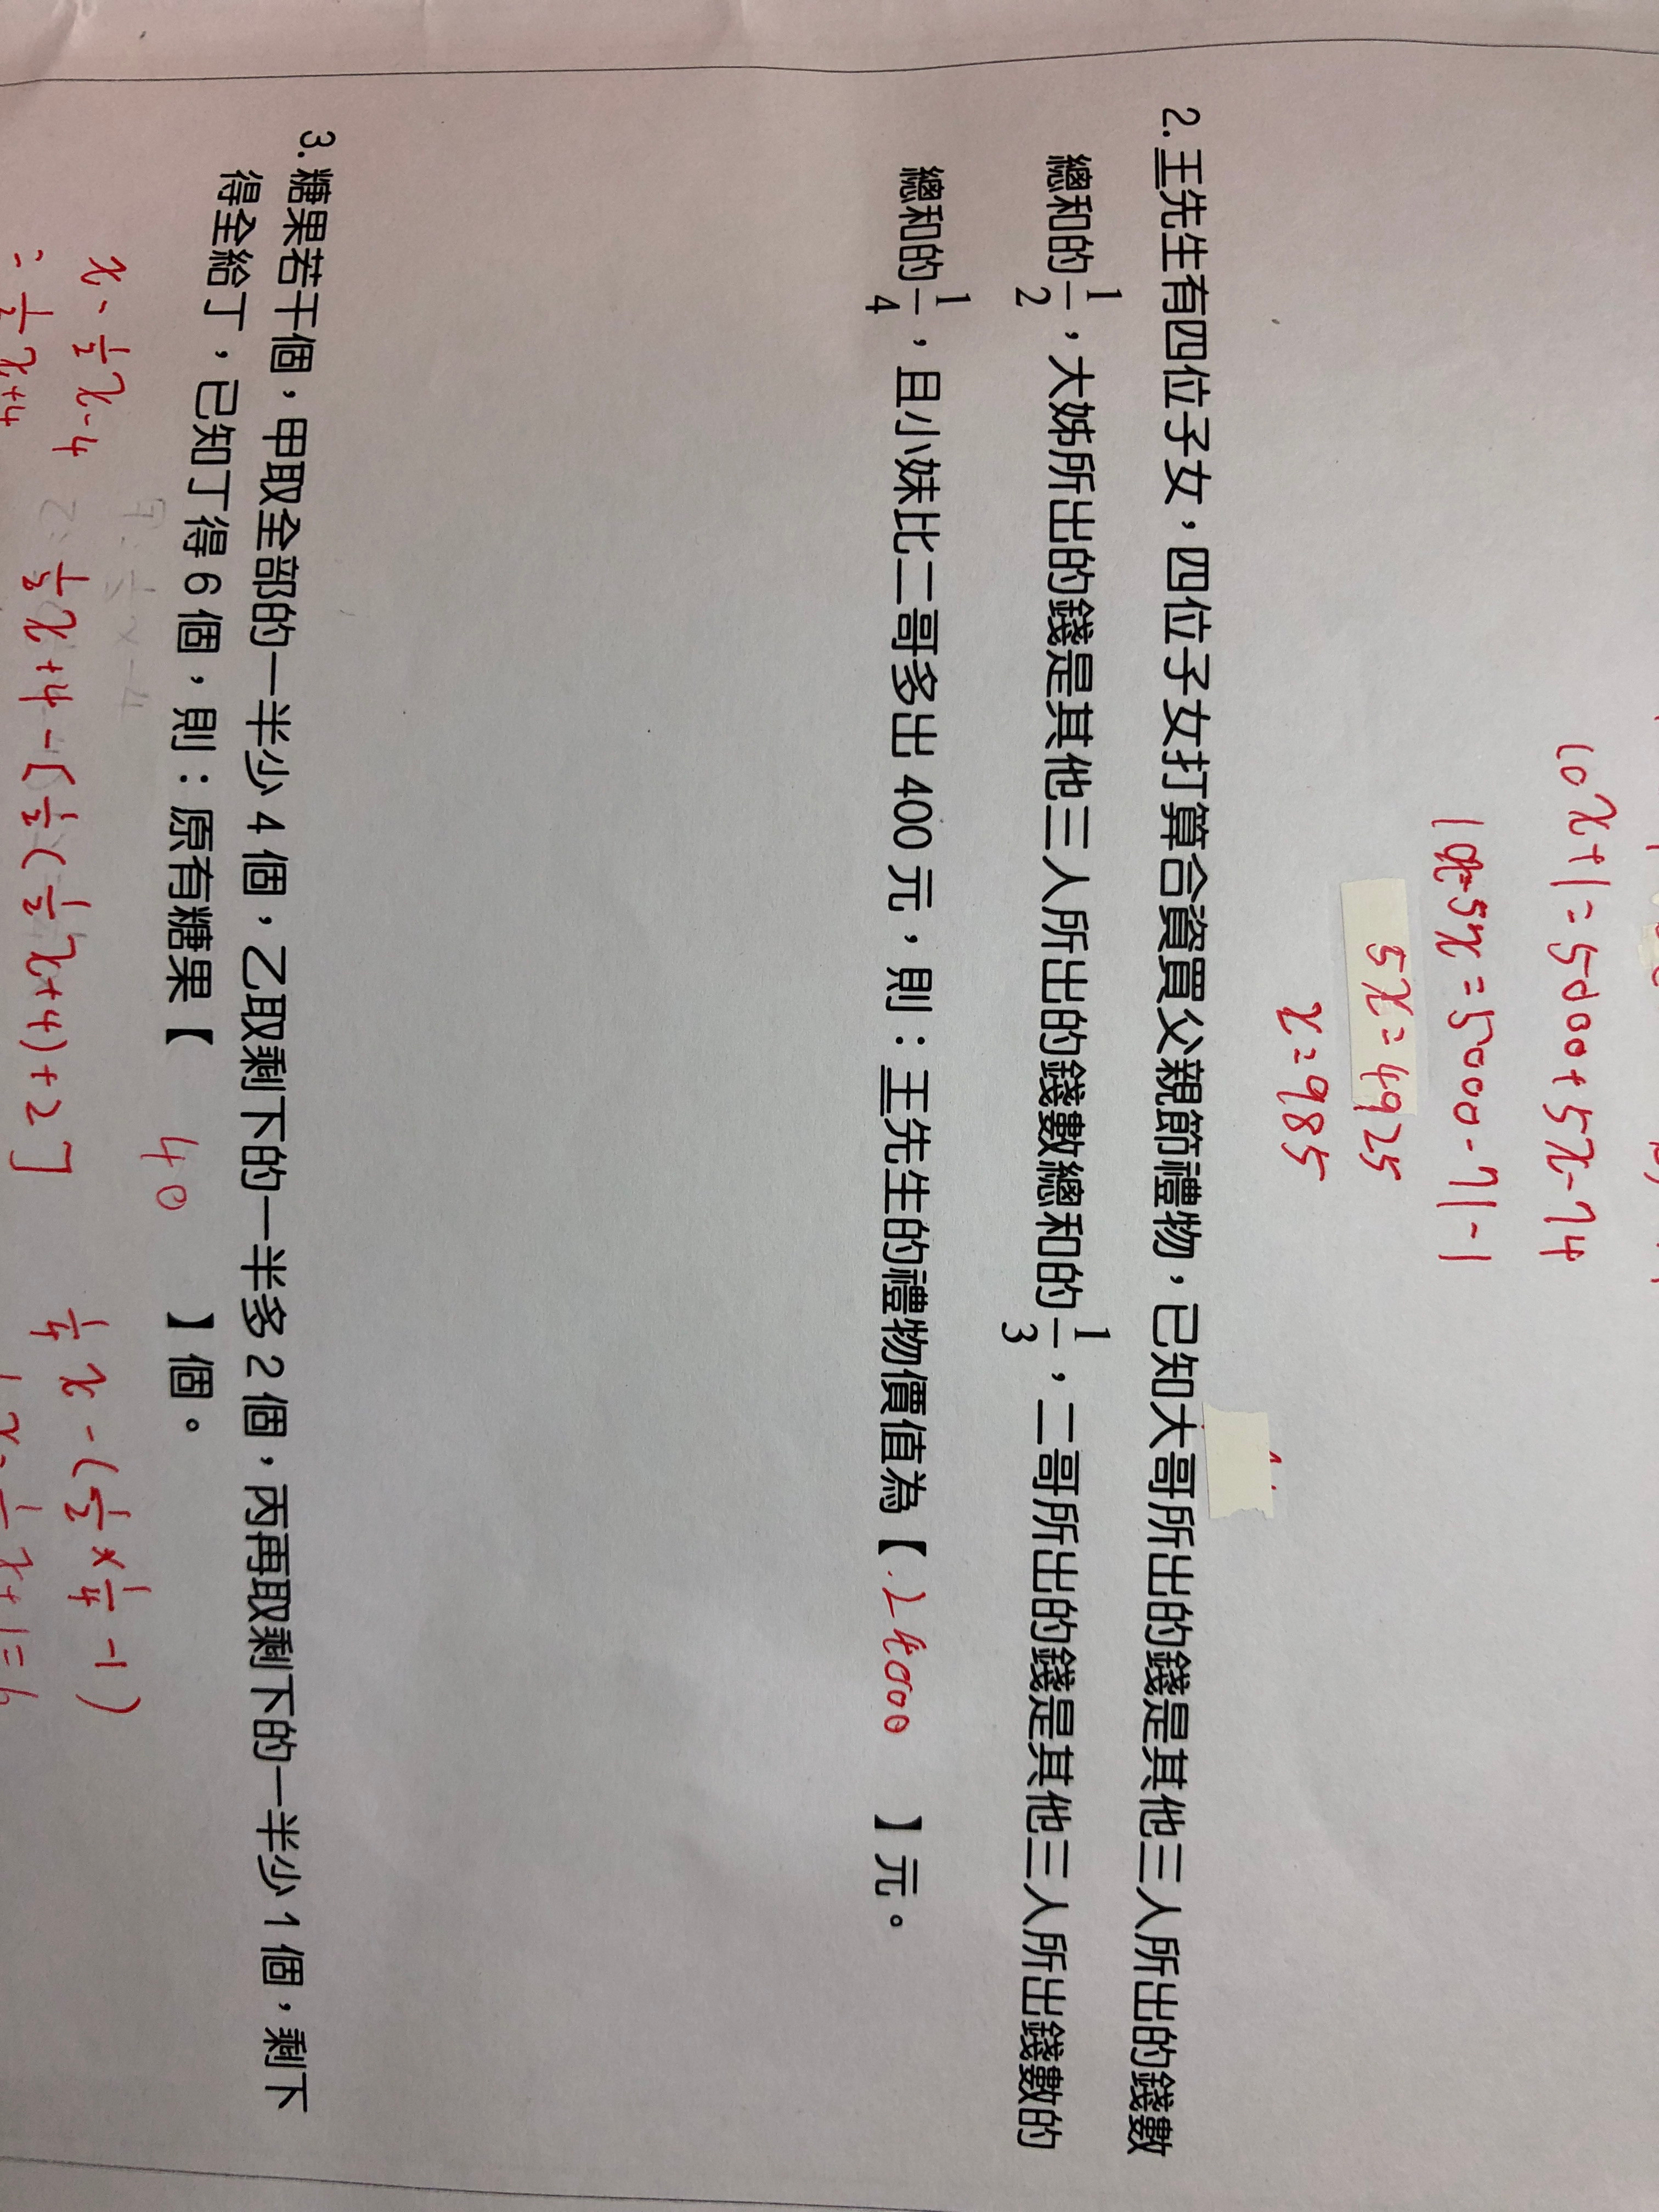 10x+1=5000+5x-74
10x-5x=5000-71-1
5x=4925
x=985
2.王先生有四位子女，四位子女打算合資買父親節禮物，已知大哥所出的錢是其他三人所出的錢數
總和的1/2，大姊所出的錢是其他三人所出的錢數總和的1/3，二哥所出的錢是其他三人所出錢數的
總和的1/4，且小妹比二哥多出400元，則：王先生的禮物價值為【24000】元。
3.糖果若干個，甲取全部的一半少4個，乙取剩下的一半多2個，丙再取剩下的一半少1個，剩下
得全給丁，已知丁得6個，則：原有糖果【40】個。
x-1/2x-4 1/2x+4-[1/2(1/2x+4)+2] 1/4x-(1/2×1/4-1)
=1/2x+4